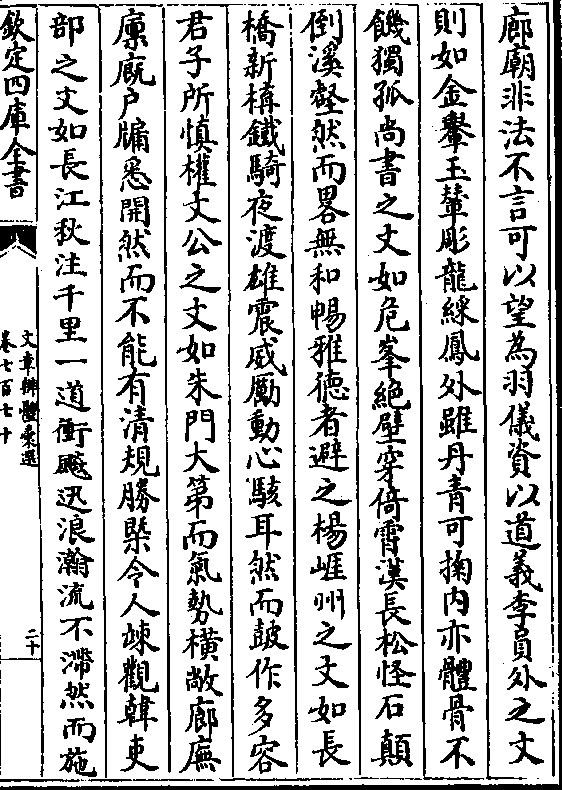 廊廟非法不言可以望為羽儀資以道義李員外之文
則如金轝玉輦彫龍綵鳳外雖丹青可掬内亦體骨不
饑獨孤尚書之文如危峯絶壁穿倚霄漢長松怪石顛
倒溪壑然而畧無和暢雅德者避之楊崕州之文如長
橋新構鐵騎夜渡雄震威厲動心駭耳然而皷作多容
君子所慎權文公之文如朱門大第而氣勢横敞廊廡
廪廐户牖悉開然而不能有清規勝槩令人竦觀韓吏
部之文如長江秋注千里一道衝飈迅浪瀚流不滯然而施
欽定四庫全書
文章辨體彚選
卷七百七十
二十